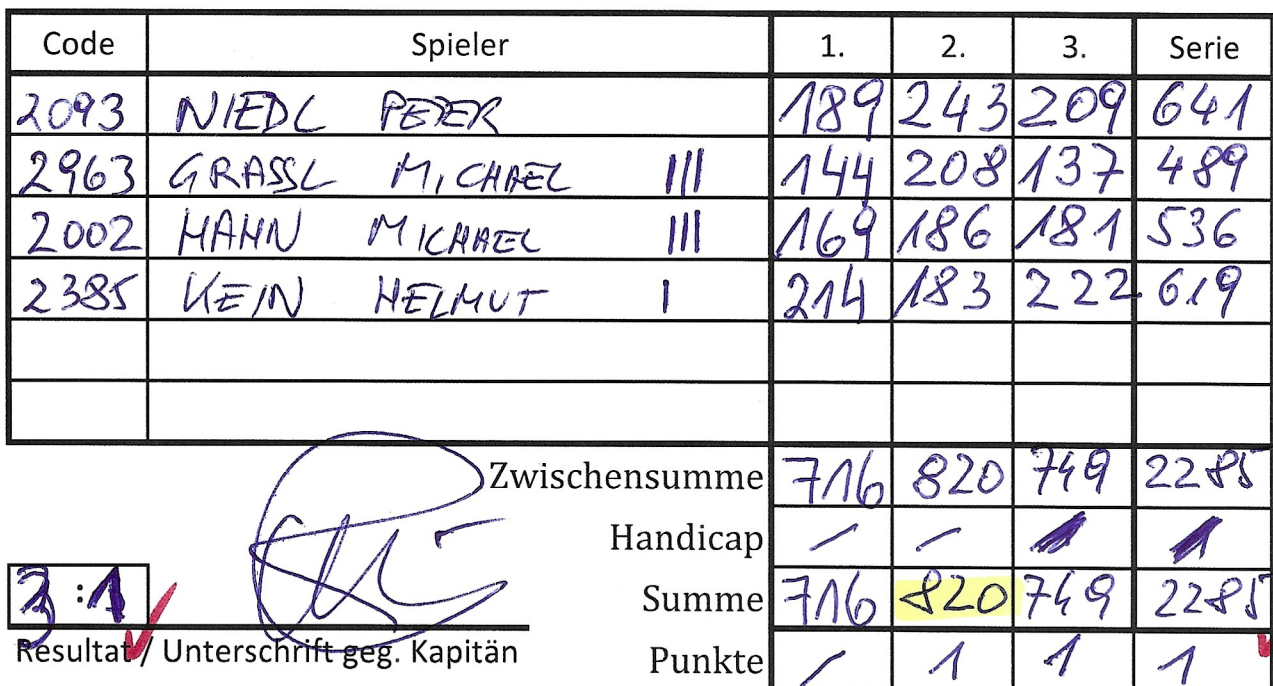 Code Spieler 1. 2. 3. Serie
2093 NIEDL PETER 189 243 209 641
2963 GRASSL MICHAEL III 144 208 137 489
2002 HAHN MICHAEL III 169 186 181 536
2385 KEIN HELMUT I 214 183 222 619
Zwischensumme 716 820 749 2285
Handicap / /
3 : 1 Summe 716 820 749 2285
Resultat / Unterschrift geg. Kapitän Punkte / 1 1 1